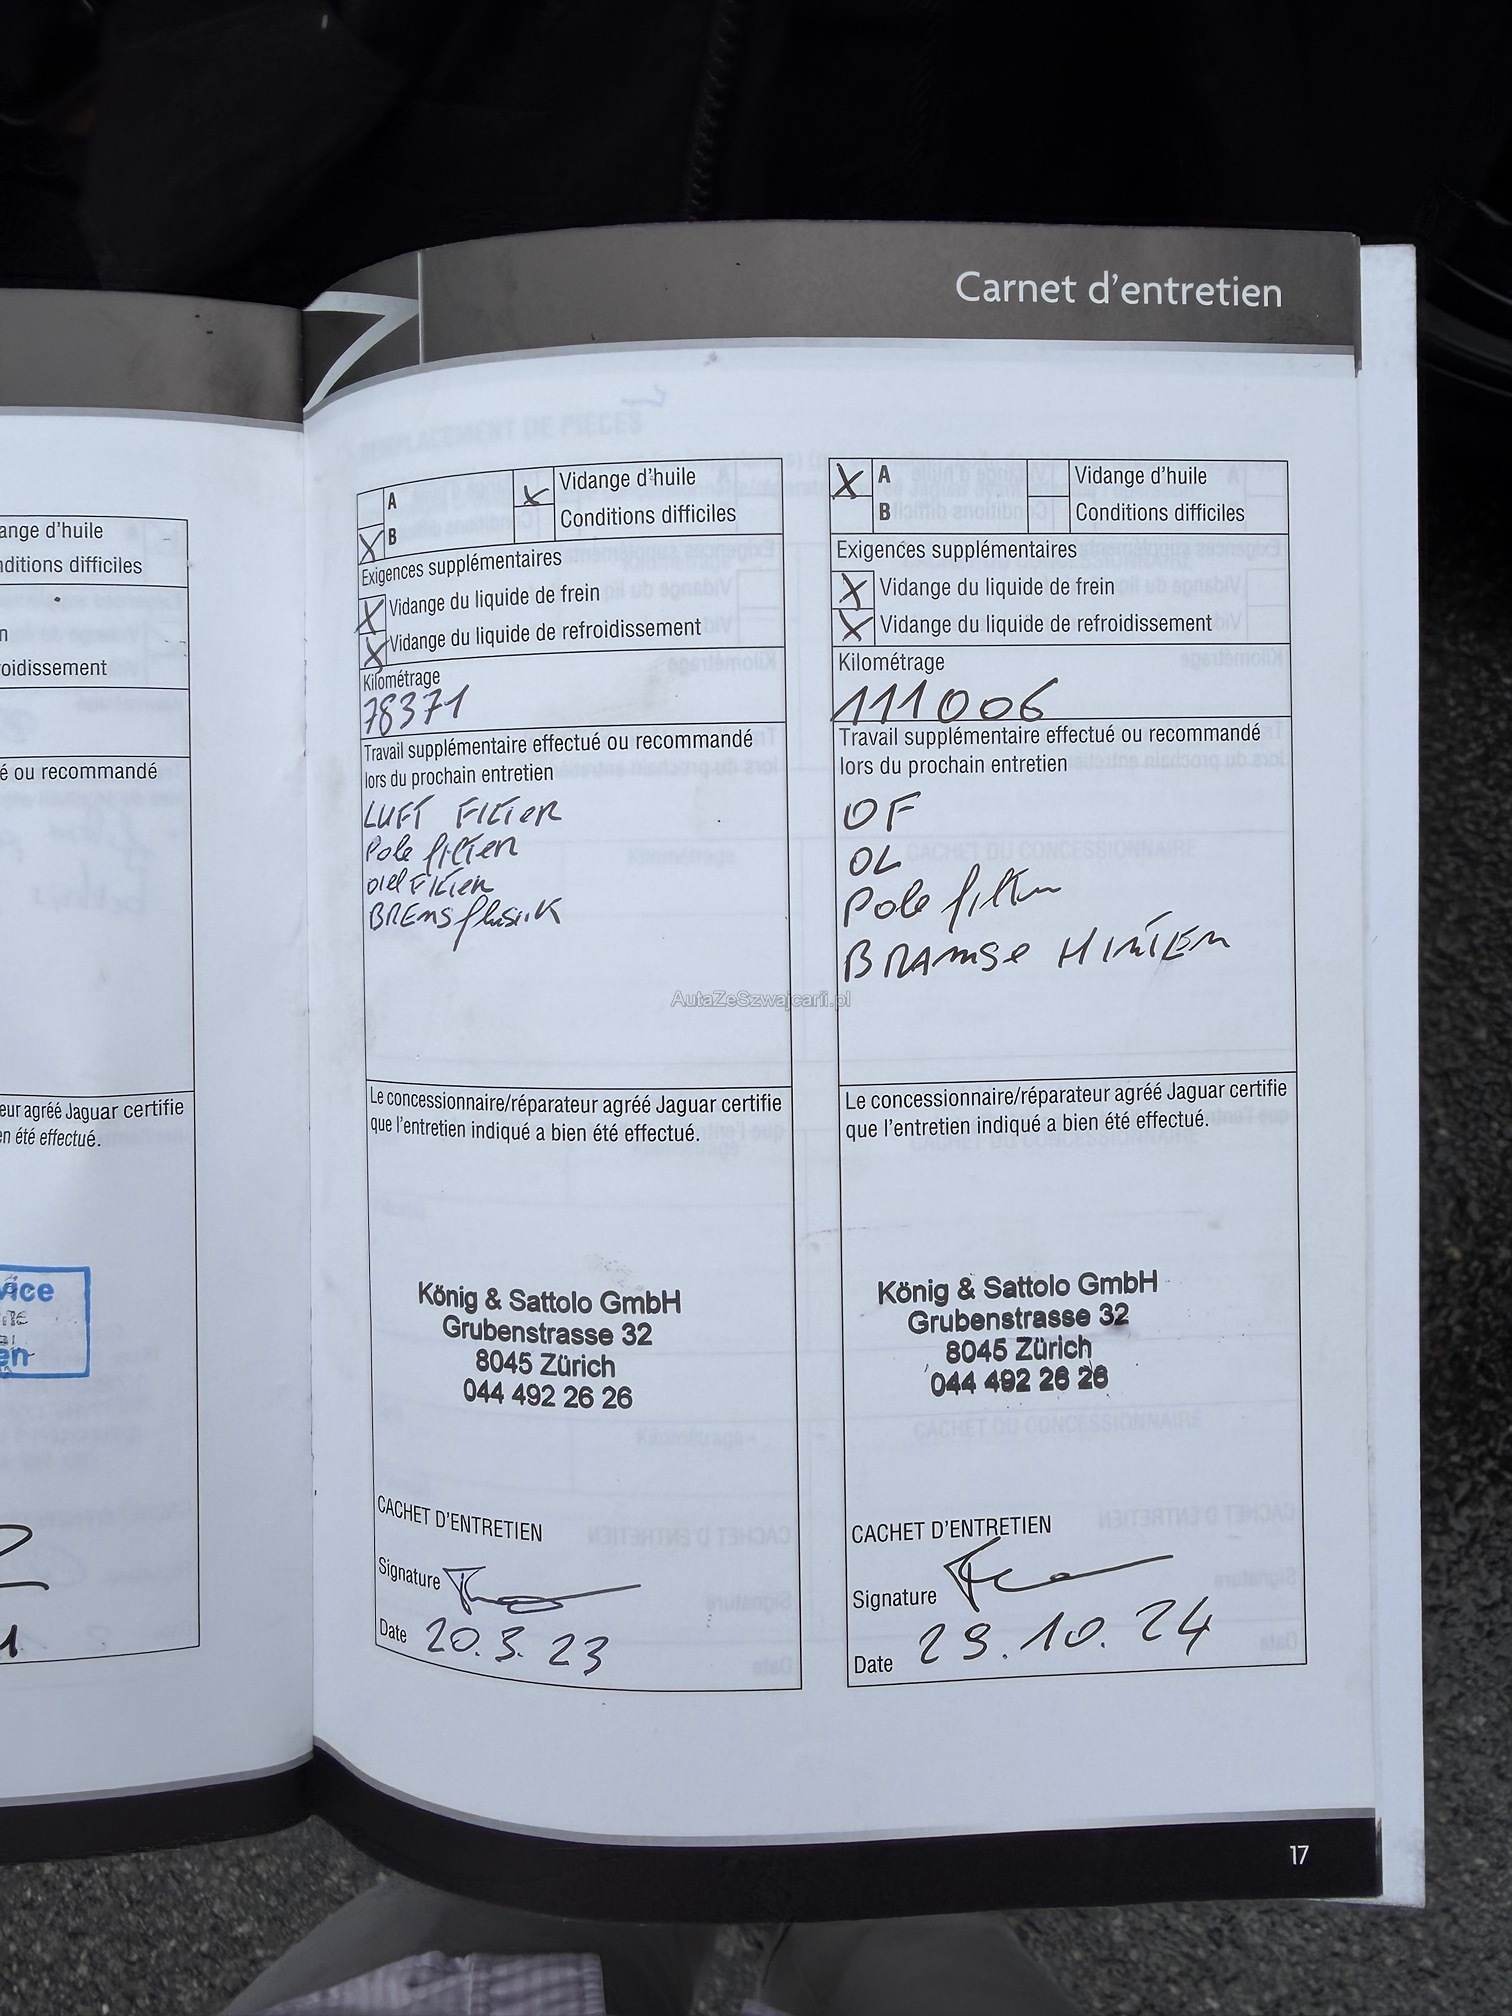 Carnet d'entretien
ange d'huile
nditions difficiles
n
oidissement
é ou recommandé
eur agréé Jaguar certifie
en été effectué.
vice
en
A
B
Vidange d'huile
Conditions difficiles
Exigences supplémentaires
X Vidange du liquide de frein
X Vidange du liquide de refroidissement
Kilométrage
78371
Travail supplémentaire effectué ou recommandé
lors du prochain entretien
LUFT FILTER
Pole filter
Oil Filter
BREMS
Le concessionnaire/réparateur agréé Jaguar certifie
que l'entretien indiqué a bien été effectué.
König & Sattolo GmbH
Grubenstrasse 32
8045 Zürich
044 492 26 26
CACHET D'ENTRETIEN
Signature
Date 20.3.23
X A
B
Vidange d'huile
Conditions difficiles
Exigences supplémentaires
X Vidange du liquide de frein
X Vidange du liquide de refroidissement
Kilométrage
111006
Travail supplémentaire effectué ou recommandé
lors du prochain entretien
OF
OL
Pole filter
BRAMSE HINTEN
Le concessionnaire/réparateur agréé Jaguar certifie
que l'entretien indiqué a bien été effectué.
König & Sattolo GmbH
Grubenstrasse 32
8045 Zürich
044 492 26 26
CACHET D'ENTRETIEN
Signature
Date 29.10.24
AutaZeSzwajcarii.pl
17